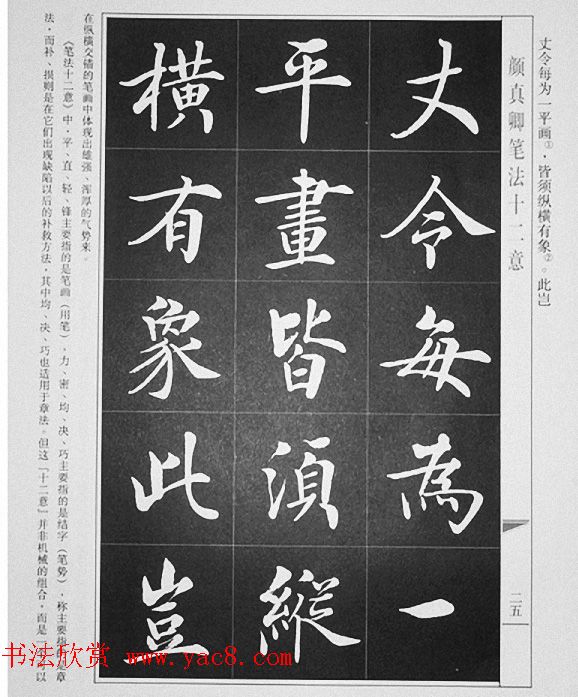 丈令每为一平画①，皆须纵横有象②。此岂
颜真卿笔法十二意
二五
丈令每為一
平畫皆須縱
橫有象此豈
在纵横交错的笔画中体现出雄强、浑厚的气势来。
《笔法十二意》中，平、直、轻、锋主要指的是笔画（用笔），力、密、均、决、巧主要指的是结字（笔势），称主要指的是章
法，而补、损则是在它们出现缺陷以后的补救方法，其中均、决、巧也适用于章法。但这「十二意」并非机械的组合，而是一 以
书法欣赏 www.yac8.com